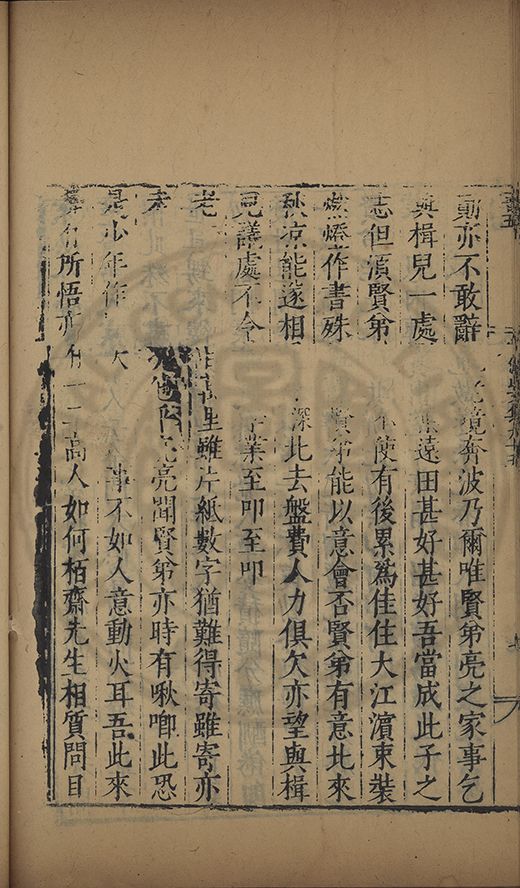 動亦不敢辭 境奔波乃爾唯賢弟亮之家事乞
與楫兒一處 遠田甚好甚好吾當成此子之
志但湏賢弟 不使有後累爲佳住大江濵束裝
燃燈作書殊 賢弟能以意會否賢弟有意北來
秋凉能遂相 深此去盤費人力俱欠亦望與楫
兒議處不令 字業至叩至叩
老 里雖片紙數字猶難得寄雖寄亦
亮聞賢弟亦時有啾唧此恐
是少年作 事不如人意動火耳吾此來
有所悟亦有一二高人如何栢齋先生相質問目